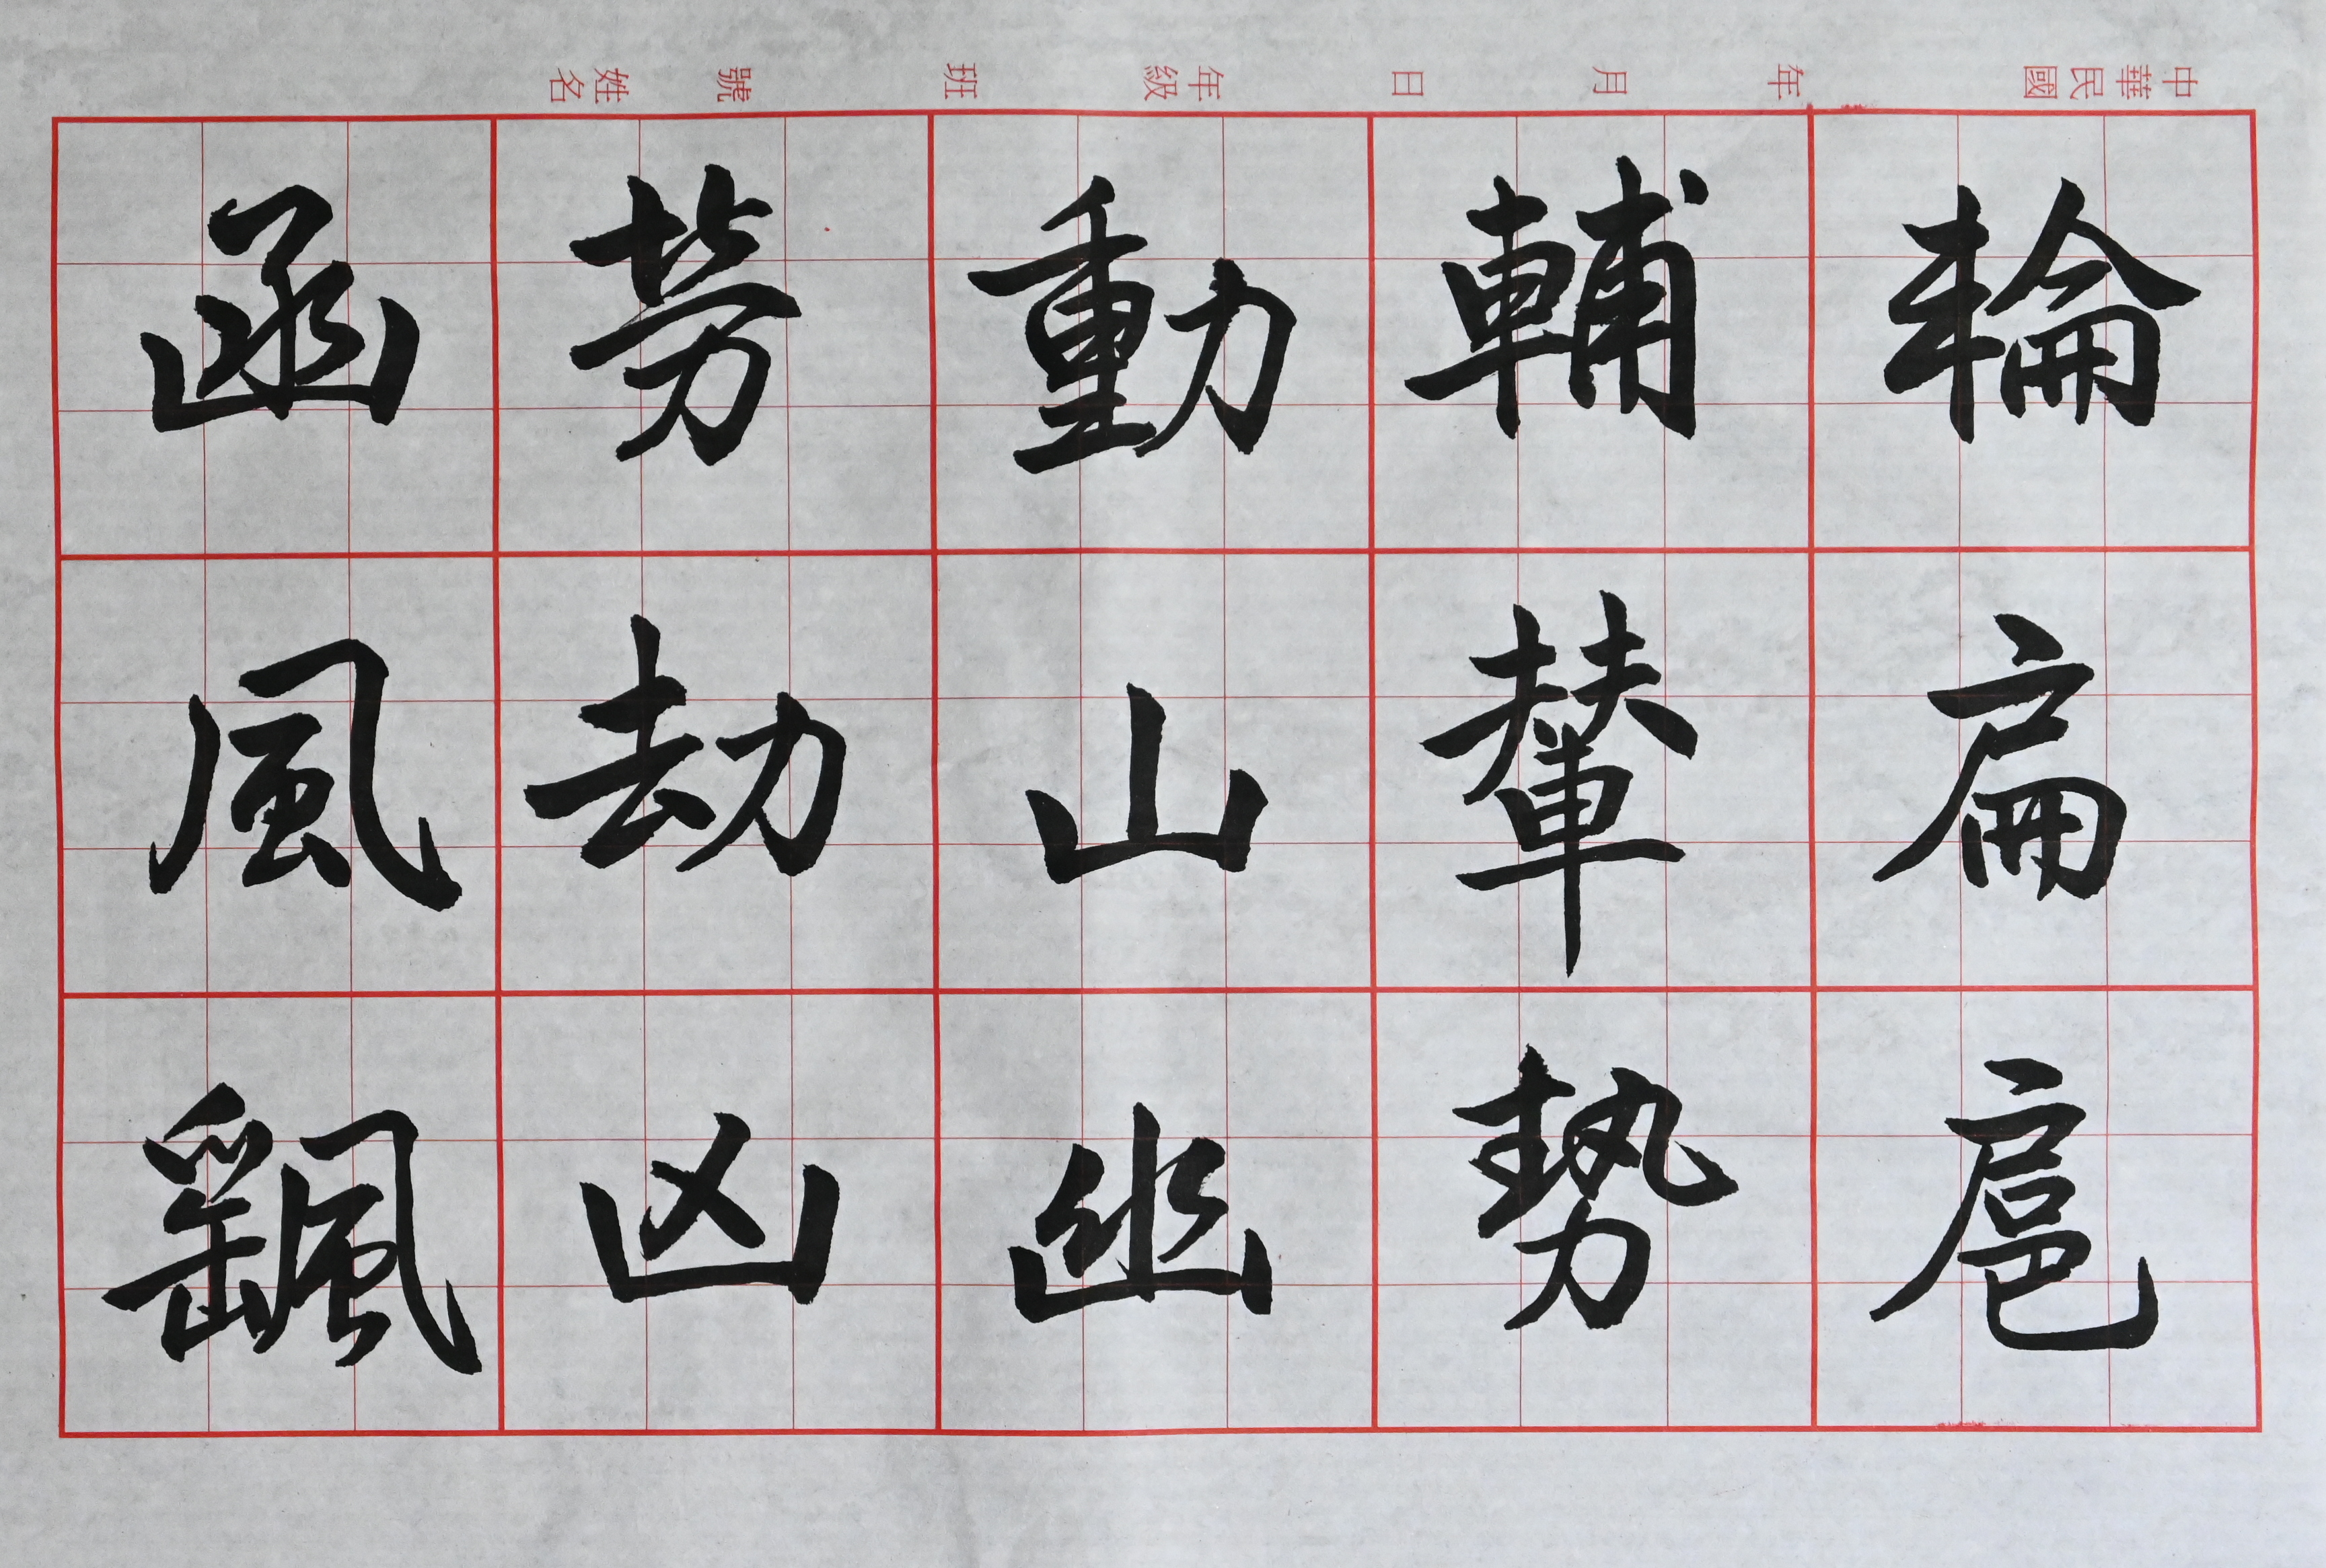 中華民國 年 月 日 年級 班 號 姓名
輪扁扈
輔輦勢
動山幽
勞劫凶
函風飆